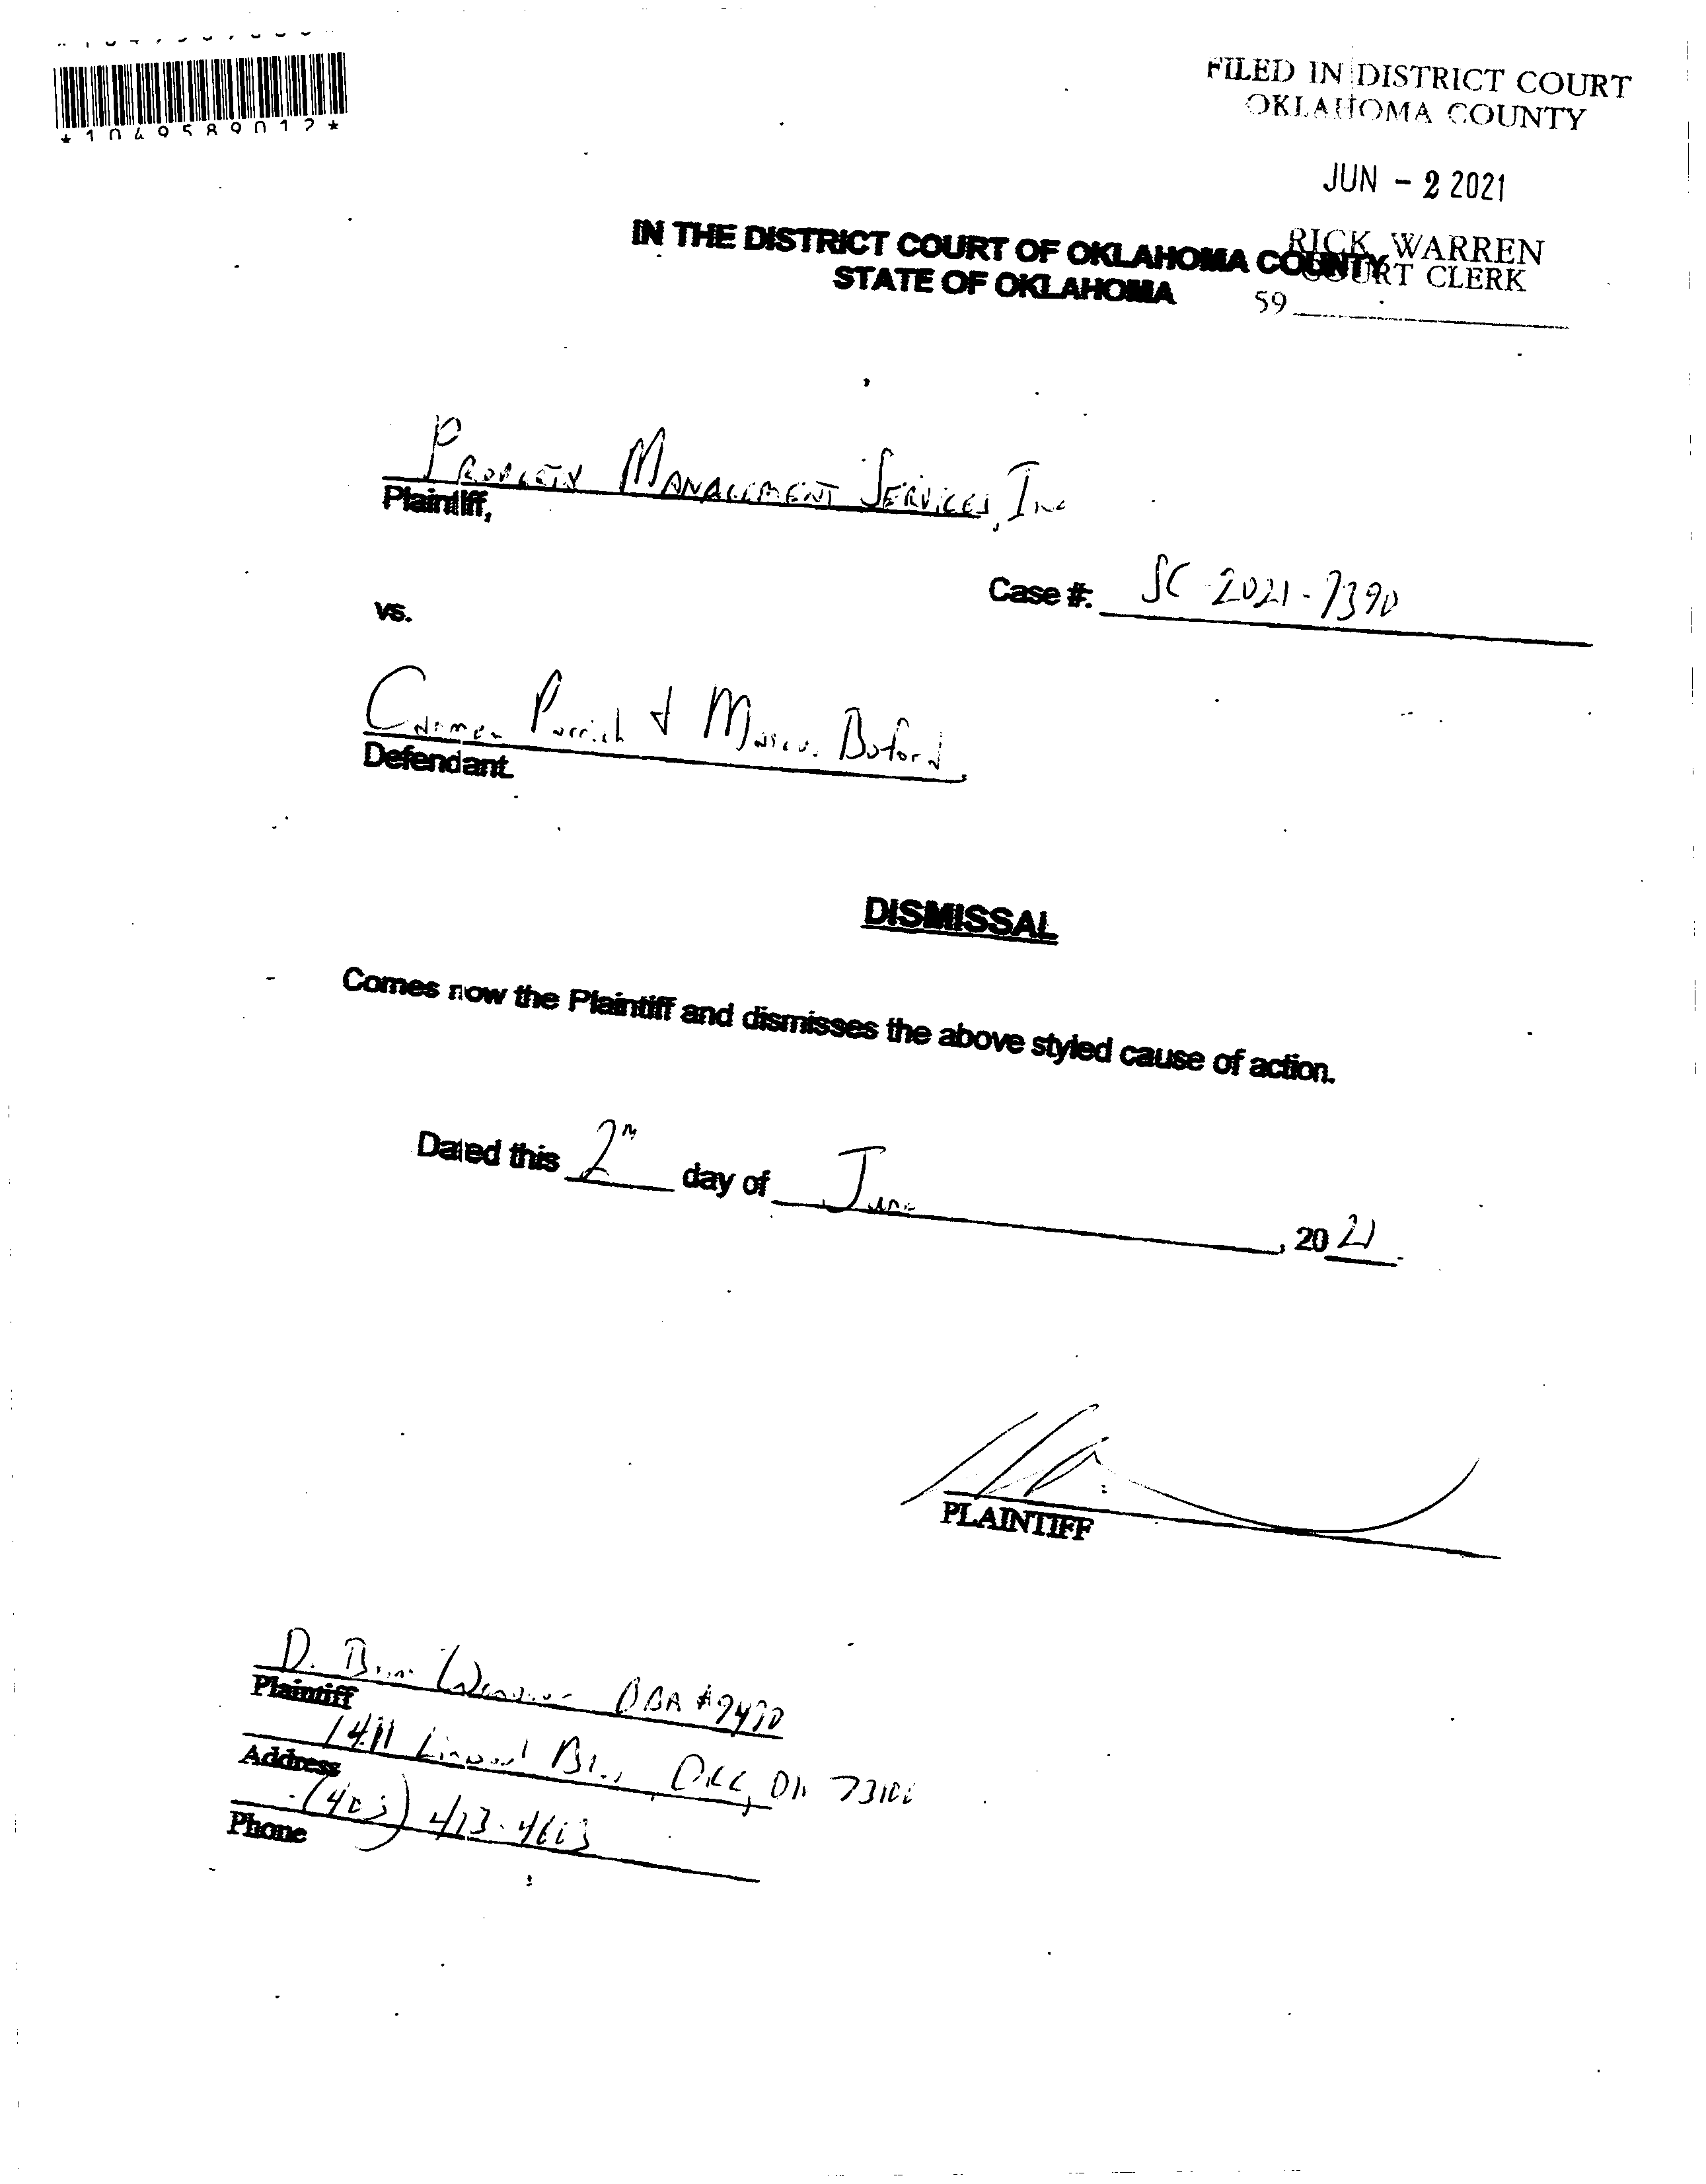 *1049589012*
FILED IN DISTRICT COURT
OKLAHOMA COUNTY
JUN - 2 2021
RICK WARREN
COURT CLERK
59
IN THE DISTRICT COURT OF OKLAHOMA COUNTY
STATE OF OKLAHOMA
PROPERTY MANAGEMENT SERVICES, Inc
Plaintiff,
Case #: SC-2021-7390
vs.
Carmen Parrish & Buford
Defendant.
DISMISSAL
Comes now the Plaintiff and dismisses the above styled cause of action.
Dated this 2nd day of June, 2021.
PLAINTIFF
D. OBA #9490
Plaintiff
1411 Linwood Bl., OKC, OK 73106
Address
Phone